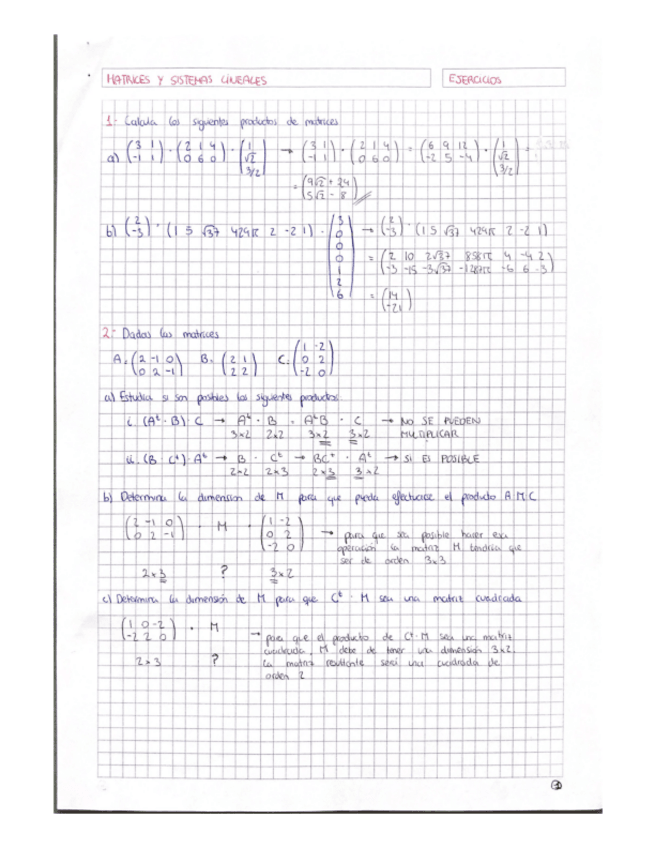 MATRICES Y SISTEMAS LINEALES
EJERCICIOS
1- Calcula los siguientes productos de matrices
a) (3 1 / -1 1) · (2 1 4 / 0 6 0) · (1 / √2 / 3/2) → (3 1 / -1 1) · (2 1 4 / 0 6 0) = (6 9 12 / -2 5 -4) · (1 / √2 / 3/2) =
= (9√2 + 24 / 5√2 - 8)
b) (2 / -3) · (1 5 √37 429π 2 -2 1) · (3 / 0 / 0 / 0 / 1 / 2 / 6) → (2 / -3) · (1 5 √37 429π 2 -2 1)
= (2 10 2√37 858π 4 -4 2 / -3 -15 -3√37 -1287π -6 6 -3)
= (14 / -21)
2- Dadas las matrices
A = (2 -1 0 / 0 2 -1) B = (2 1 / 2 2) C = (1 -2 / 0 2 / -2 0)
a) Estudia si son posibles los siguientes productos:
i. (Aᵗ · B) · C → Aᵗ · B = AᵗB · C → NO SE PUEDEN
3x2 2x2 3x2 3x2 MULTIPLICAR
ii. (B · Cᵗ) · Aᵗ → B · Cᵗ → BCᵗ · Aᵗ → SI ES POSIBLE
2x2 2x3 2x3 3x2
b) Determina la dimension de M para que pueda efectuarse el producto A·M·C
(2 -1 0 / 0 2 -1) · M · (1 -2 / 0 2 / -2 0) → para que sea posible hacer esa
operación la matriz M tendria que
ser de orden 3x3
2x3 ? 3x2
c) Determina la dimensión de M para que Cᵗ · M sea una matriz cuadrada
(1 0 -2 / -2 2 0) · M
→ para que el producto de Cᵗ·M sea una matriz
cuadrada, M debe de tener una dimensión 3x2.
2x3 ? La matriz resultante será una cuadrada de
orden 2
1